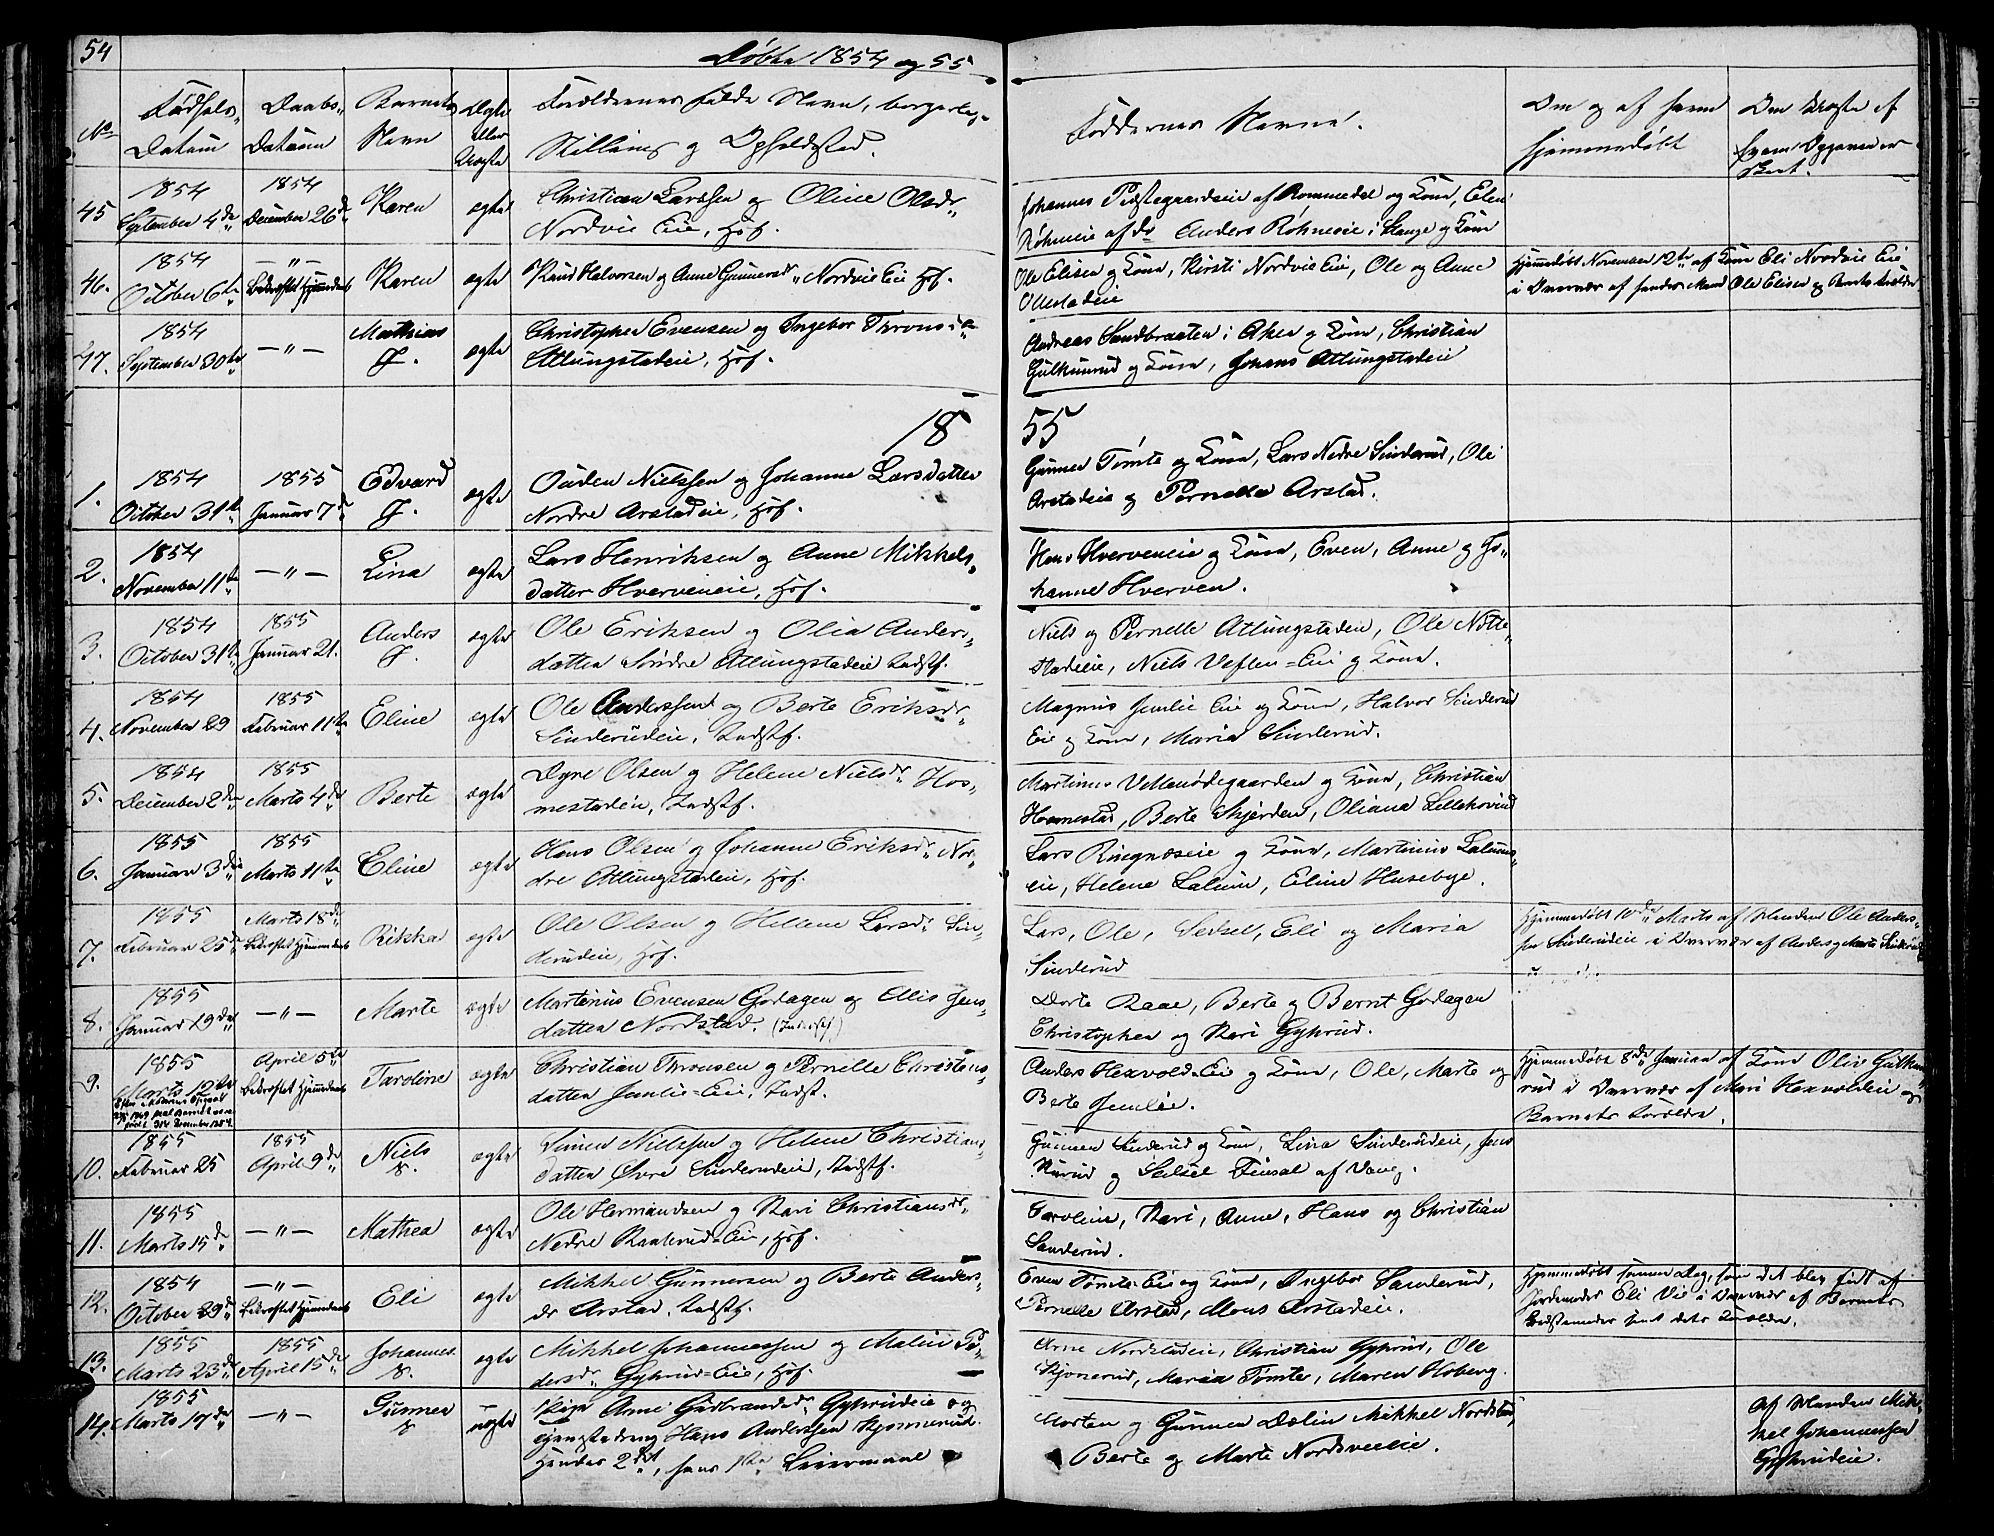 54
Døbte 1854 og 55
No
Fødsels-
Datum
Daabs-
Datum
Barnets
Navn
Ægte
eller
Uægte
Forældrenes fulde Navn, borgerlig-
Stilling og Opholdssted.
Faddernes Navne.
Om og af hvem
hjemmedøbt
Om Uægte af
hvem Opgaven er
skeet.
45
1854
September 4de
1854
December 26de
Karen
ægte
Christian Larssen og Oline Olsdr
Nordvie Eie, Hof.
Johannes Præstegaardseie af Rommedal og Kone, Eline
Røhneeie af do Anders Røhneeie i Stange og Kone
46.
1854
October 6te
— " —
Bekræftet Hjemmedaab
Karen
ægte
Knud Halvorsen og Anne Gunnersdr Nordvie Eie Hof.
Ole Elisen og Kone, Kirsti Nordvie Eie, Ole og Anne
Ollestadeie
Hjemmedøbt November 12te af Kone Eli Nordvie Eie
i Overvær af hendes Mand Ole Elisen og Barnets Forældre
47.
1854
September 30te
— " —
Mathias
J.
ægte
Christopher Evensen og Ingebor Thronsdr
Atlungstadeie, Hof.
Andreas Sandbraaten i Aker og Kone, Christian
Gulkinrud og Kone, Johans Atlungstadeie
18 55
1.
1854
October 31te
1855
Januar 7de
Edvard
J.
ægte
Ouden Nielssen og Johanne Larsdatter
Nordre Arstadeie, Hof.
Gunner Tømte og Kone, Lars Nedre Sinderud, Ole
Arstadeie og Pernelle Arstad.
2.
1854
November 11te
— " —
Lina
ægte
Lars Henriksen og Anne Mikkels-
datter Hverveneie, Hof.
Hans Hverveneie og Kone, Even, Anne og Jo-
hanne Hverven.
3.
1854
October 31te
1855
Januar 21.
Anders
J.
ægte
Ole Eriksen og Olia Anders-
datter Søndre Atlungstadeie Indstf.
Niels og Pernelle Atlungstadeie, Ole Nøtte-
stadeie, Niels Veflen-Eie og Kone.
4.
1854
November 29
1855
Februar 11te
Eline
ægte
Ole Anderssen og Berte Eriksdr
Sinderudeie, Indstf.
Magnus Jemlie Eie og Kone, Halvor Sinderud
Eie og Kone, Maria Sinderud.
5.
1854
December 2de
1855
Marts 4de
Berte
ægte
Dyre Olsen og Helene Nielsdr Hos-
mestadeie, Indstf.
Martinus Vellenødegaarden og Kone, Christian
Hosmestad, Berte Skjerden, Oliana Lillehovind
6.
1855
Januar 3die
1855
Marts 11te
Eline
ægte
Hans Olsen og Johanne Eriksdr Nor-
dre Atlungstadeie, Hof.
Lars Ringnæseie og Kone, Martinus Lalums-
eie, Helene Lalum, Eline Husebye.
7.
1855
Februar 25de
Marts 18de
Bekræftet Hjemmedaab
Rikka
ægte
Ole Olsen og Hellene Larsdr Sin-
derudeie, Hof.
Lars, Ole, Sedsel, Eli og Maria
Sinderud
Hjemmedøbt 10de Marts af Manden Ole Anders-
sen Sinderudeie i Overvær af Anders og Marte Sinderud
8.
1855
Januar 19de
— " —
Marte
ægte
Martinus Evensen Godagen og Alis Jens-
datter Nordstad. (Indstf.)
Dorte Raae, Berte og Bernt Godagen
Christopher og Kari Gyhrud.
9.
1855
Marts 12te
April 5te
Bekræftet Hjemmedaab
Taroline
ægte
Christian Thronsen og Pernelle Christens-
datter Jemlie-Eie, Indst.
Anders Hexvold-Eie og Kone, Ole, Marte og
Berte Jemlie.
Hjemmedøbt 8de Januar af Kone Olie Gulkin-
rud i Overvær af Mari Hexvoldeie og
Barnets Forældre.
10.
1855
Februar 25
1855
April 9de
Niels
ægte
Simen Nielssen og Helene Christians-
datter Øvre Sinderudeie, Indstf.
Gunner Sinderud og Kone, Lina Sinderudeie, Jens
Rurud og Sidsel Finsal af Vang.
11.
1855
Marts 15de
— " —
Mathea
ægte
Ole Hermandsen og Kari Christiansdr
Nedre Raakrud-Eie, Hof.
Caroline, Kari, Anne, Hans og Christian
Sanderud.
12.
1854
October 29de
— " —
Bekræftet Hjemmedaab
Eli
ægte
Mikkel Gunnersen og Berte Anders-
dr Arstad, Indstf.
Even Tømte-Eie og Kone, Ingebor Sanderud,
Pernelle Arstad, Mons Arstadeie.
Hjemmedøbt samme Dag, som det blev født af
Jordemoder Eli Vie i Overvær af Barnets
Bedstemoder samt dets Forældre.
13.
1855
Marts 23de
1855
April 15de
Johannes
ægte
Mikkel Johannessen og Malene Pe-
dersdr Gyhrud-Eie, Hof.
Arne Nordstadeie, Christian Gyhrud, Ole
Kjonerud, Maria Tømte, Maren Hoberg.
14.
1855
Marts 17de
— " —
Gunnea
uægte
Pige Anne Gudbrandsdr Gyhrudeie og
Ungkarl Hans Anderssen Kjonerud.
Hendes 2det, hans 1ste Leiermaal
Morten og Gunnea Dælin Mikkel Nordstad,
Berte og Marte Nordsveeie.
Af Manden Mik-
kel Johannessen
Gyhrudeie.